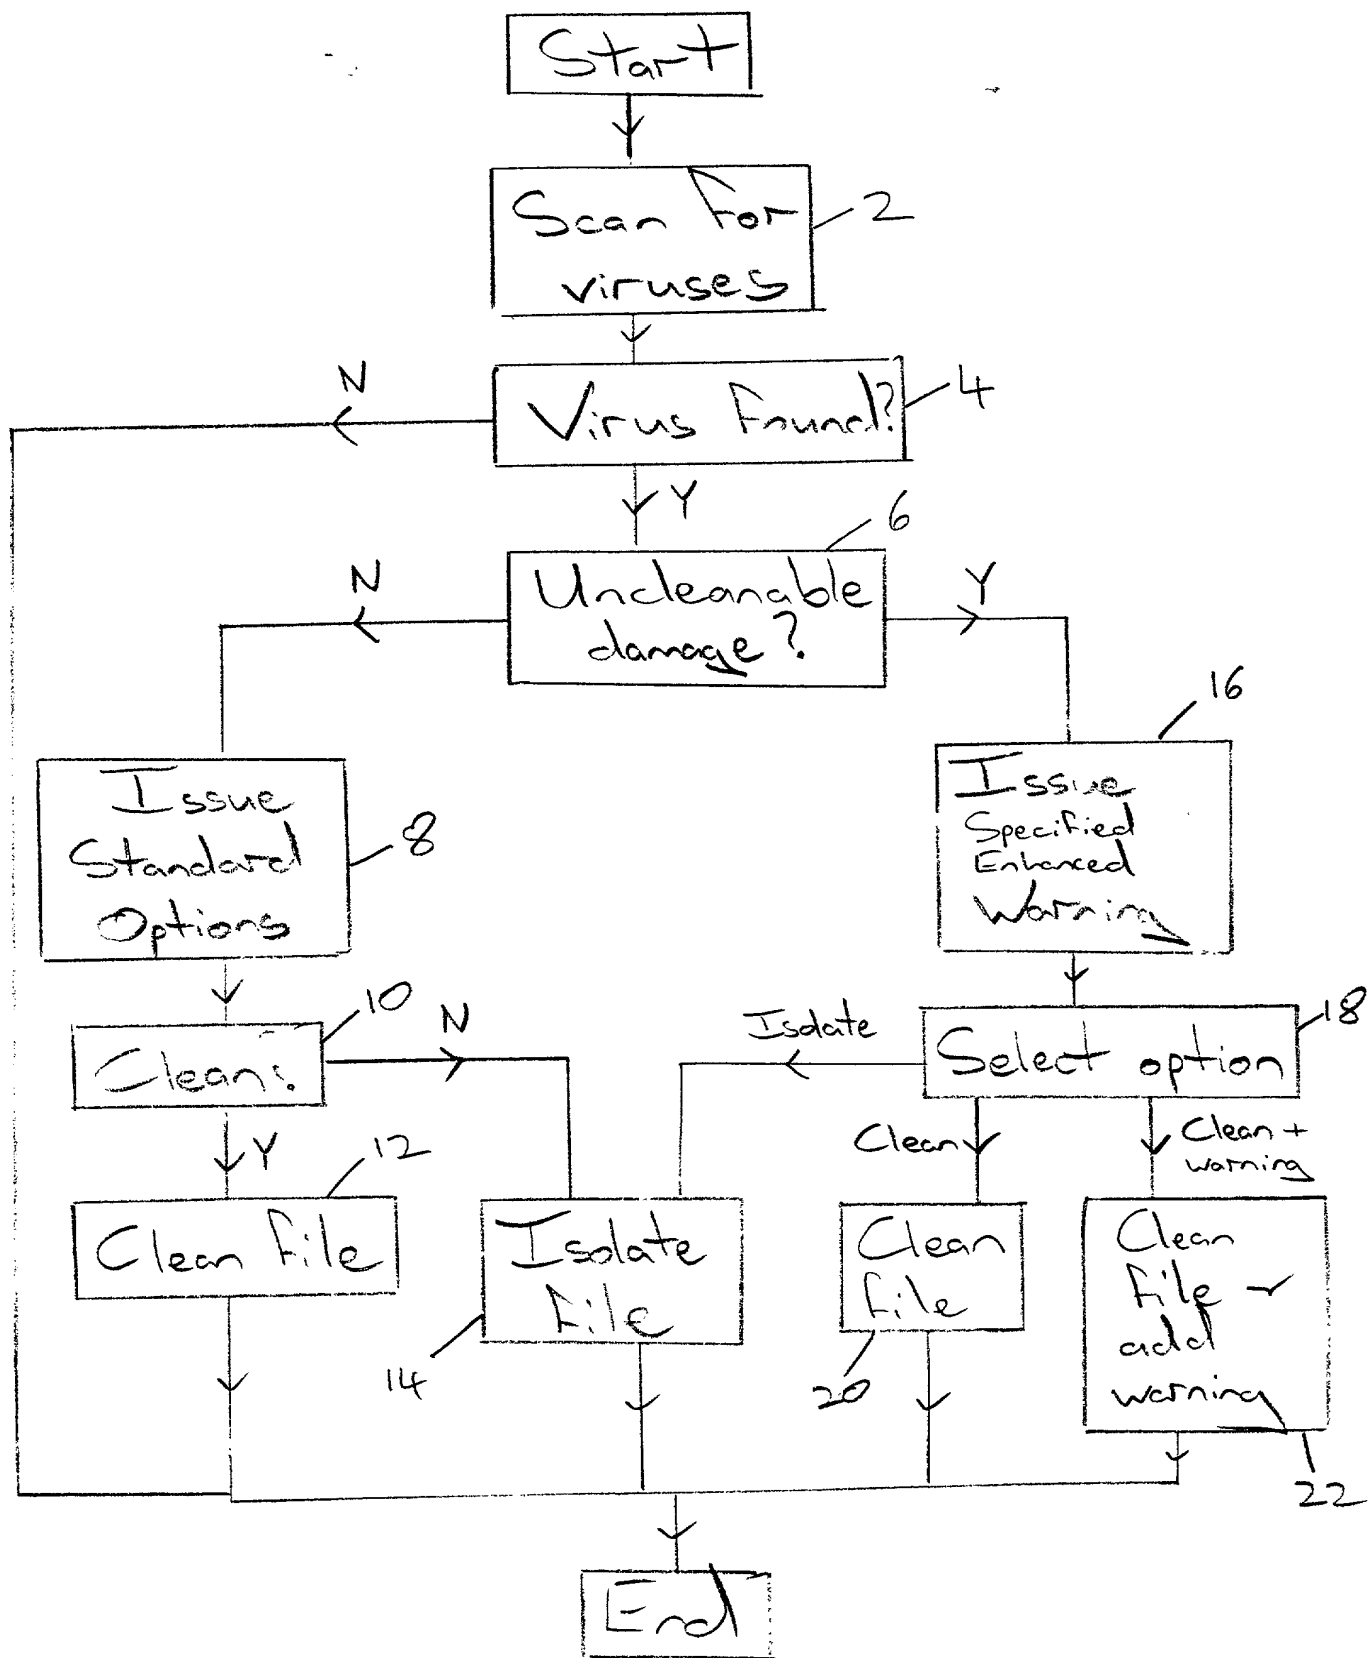 Start
Scan for
viruses
2
N
Virus found?
4
Y
6
N
Uncleanable
damage?
Y
16
Issue
Standard
Options
8
Issue
Specified
Enhanced
Warning
10
Clean?
N
Isolate
Select option
18
Y
12
Clean
Clean +
warning
Clean file
Isolate
file
14
Clean
file
20
Clean
file -
add
warning
22
End